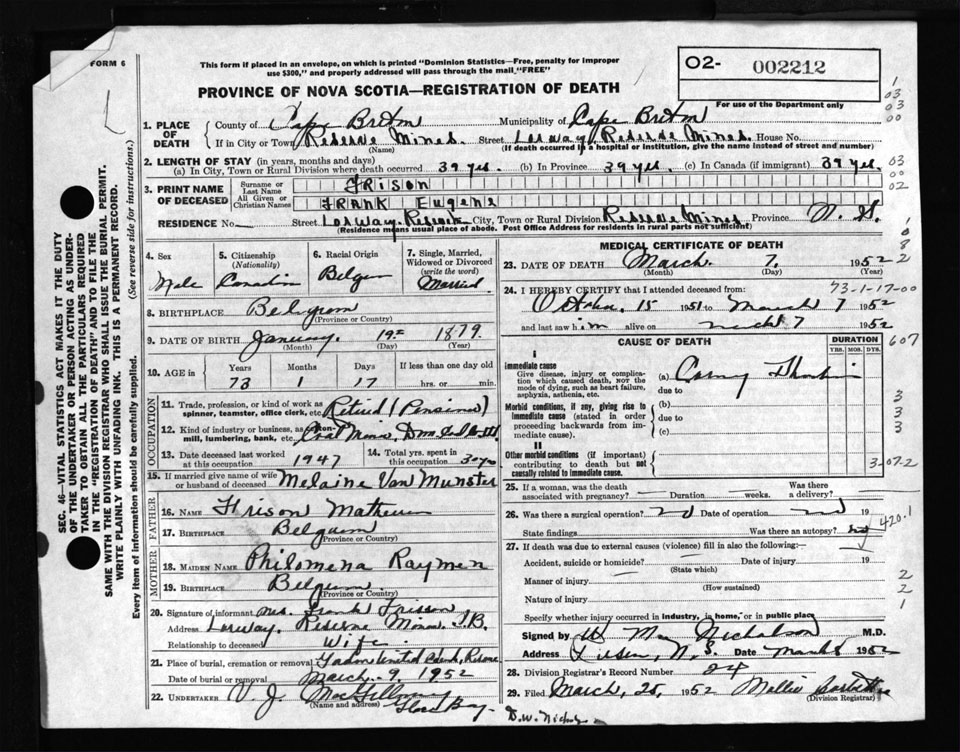 FORM 6
This form if placed in an envelope, on which is printed "Dominion Statistics—Free, penalty for improper
use $300," and properly addressed will pass through the mail "FREE"
O2- 002212
For use of the Department only
PROVINCE OF NOVA SCOTIA—REGISTRATION OF DEATH
SEC. 46—VITAL STATISTICS ACT MAKES IT THE DUTY
OF THE UNDERTAKER OR PERSON ACTING AS UNDER-
TAKER TO OBTAIN ALL THE PARTICULARS REQUIRED
IN THE "REGISTRATION OF DEATH" AND TO FILE THE
SAME WITH THE DIVISION REGISTRAR WHO SHALL ISSUE THE BURIAL PERMIT.
WRITE PLAINLY WITH UNFADING INK. THIS IS A PERMANENT RECORD.
Every item of information should be carefully supplied. (See reverse side for instructions.)
1. PLACE OF DEATH
County of Cape Breton Municipality of Cape Breton
If in City or Town Reserve Mines. Street Lorway, Reserve Mines. House No.
(Name) (If death occurred in a hospital or institution, give the name instead of street and number)
2. LENGTH OF STAY (in years, months and days)
(a) In City, Town or Rural Division where death occurred 39 yrs. (b) In Province 39 yrs. (c) In Canada (if immigrant) 39 yrs.
3. PRINT NAME OF DECEASED
Surname or Last Name FRISON
All Given or Christian Names FRANK EUGENE
RESIDENCE No. Street Lorway. Reserve City, Town or Rural Division Reserve Mines Province N. S.
(Residence means usual place of abode. Post Office Address for residents in rural parts not sufficient)
4. Sex Male
5. Citizenship (Nationality) Canadian
6. Racial Origin Belgian
7. Single, Married, Widowed or Divorced (write the word) Married
8. BIRTHPLACE Belgium
(Province or Country)
9. DATE OF BIRTH January. 19 1879
(Month) (Day) (Year)
10. AGE in Years Months Days If less than one day old
73 1 17 hrs. or min.
OCCUPATION
11. Trade, profession, or kind of work as spinner, teamster, office clerk, etc. Retired (Pensioner)
12. Kind of industry or business, as cotton-mill, lumbering, bank, etc. Coal Mine
13. Date deceased last worked at this occupation 1947
14. Total yrs. spent in this occupation 30 yrs
15. If married give name of wife or husband of deceased Melaine Van Munster
FATHER
16. NAME Frison
17. BIRTHPLACE Belgium
(Province or Country)
MOTHER
18. MAIDEN NAME Philomena Raymen
19. BIRTHPLACE Belgium
(Province or Country)
20. Signature of informant Mrs. Frank Frison
Address Lorway. Reserve Mines. C.B.
Relationship to deceased Wife
21. Place of burial, cremation or removal United Church, Reserve
Date of burial or removal March. 9. 1952
22. UNDERTAKER V. J. Glace Bay
(Name and address)
MEDICAL CERTIFICATE OF DEATH
23. DATE OF DEATH March. 7. 1952
(Month) (Day) (Year)
24. I HEREBY CERTIFY that I attended deceased from:
73-1-17-00
October 15 1951 to March 7 1952
and last saw him alive on March 7 1952
CAUSE OF DEATH
DURATION
YRS. MOS. DYS.
I
Immediate cause
Give disease, injury or complication which caused death, NOT the mode of dying, such as heart failure, asphyxia, asthenia, etc.
(a)
due to
Morbid conditions, if any, giving rise to immediate cause (stated in order proceeding backwards from immediate cause).
(b)
due to
(c)
II
Other morbid conditions (if important) contributing to death but not causally related to immediate cause.
3-07-2
25. If a woman, was the death associated with pregnancy? Duration weeks. Was there a delivery?
26. Was there a surgical operation? no Date of operation
State findings Was there an autopsy? no
420.1
27. If death was due to external causes (violence) fill in also the following:—
Accident, suicide or homicide? Date of injury 19
(State which)
Manner of injury
(How sustained)
Nature of injury
Specify whether injury occurred in industry, in home, or in public place
Signed by Nicholson M.D.
Address N.S. Date March 8 1952
28. Division Registrar's Record Number 24
29. Filed March, 26, 1952 Mollie
(Division Registrar)
607